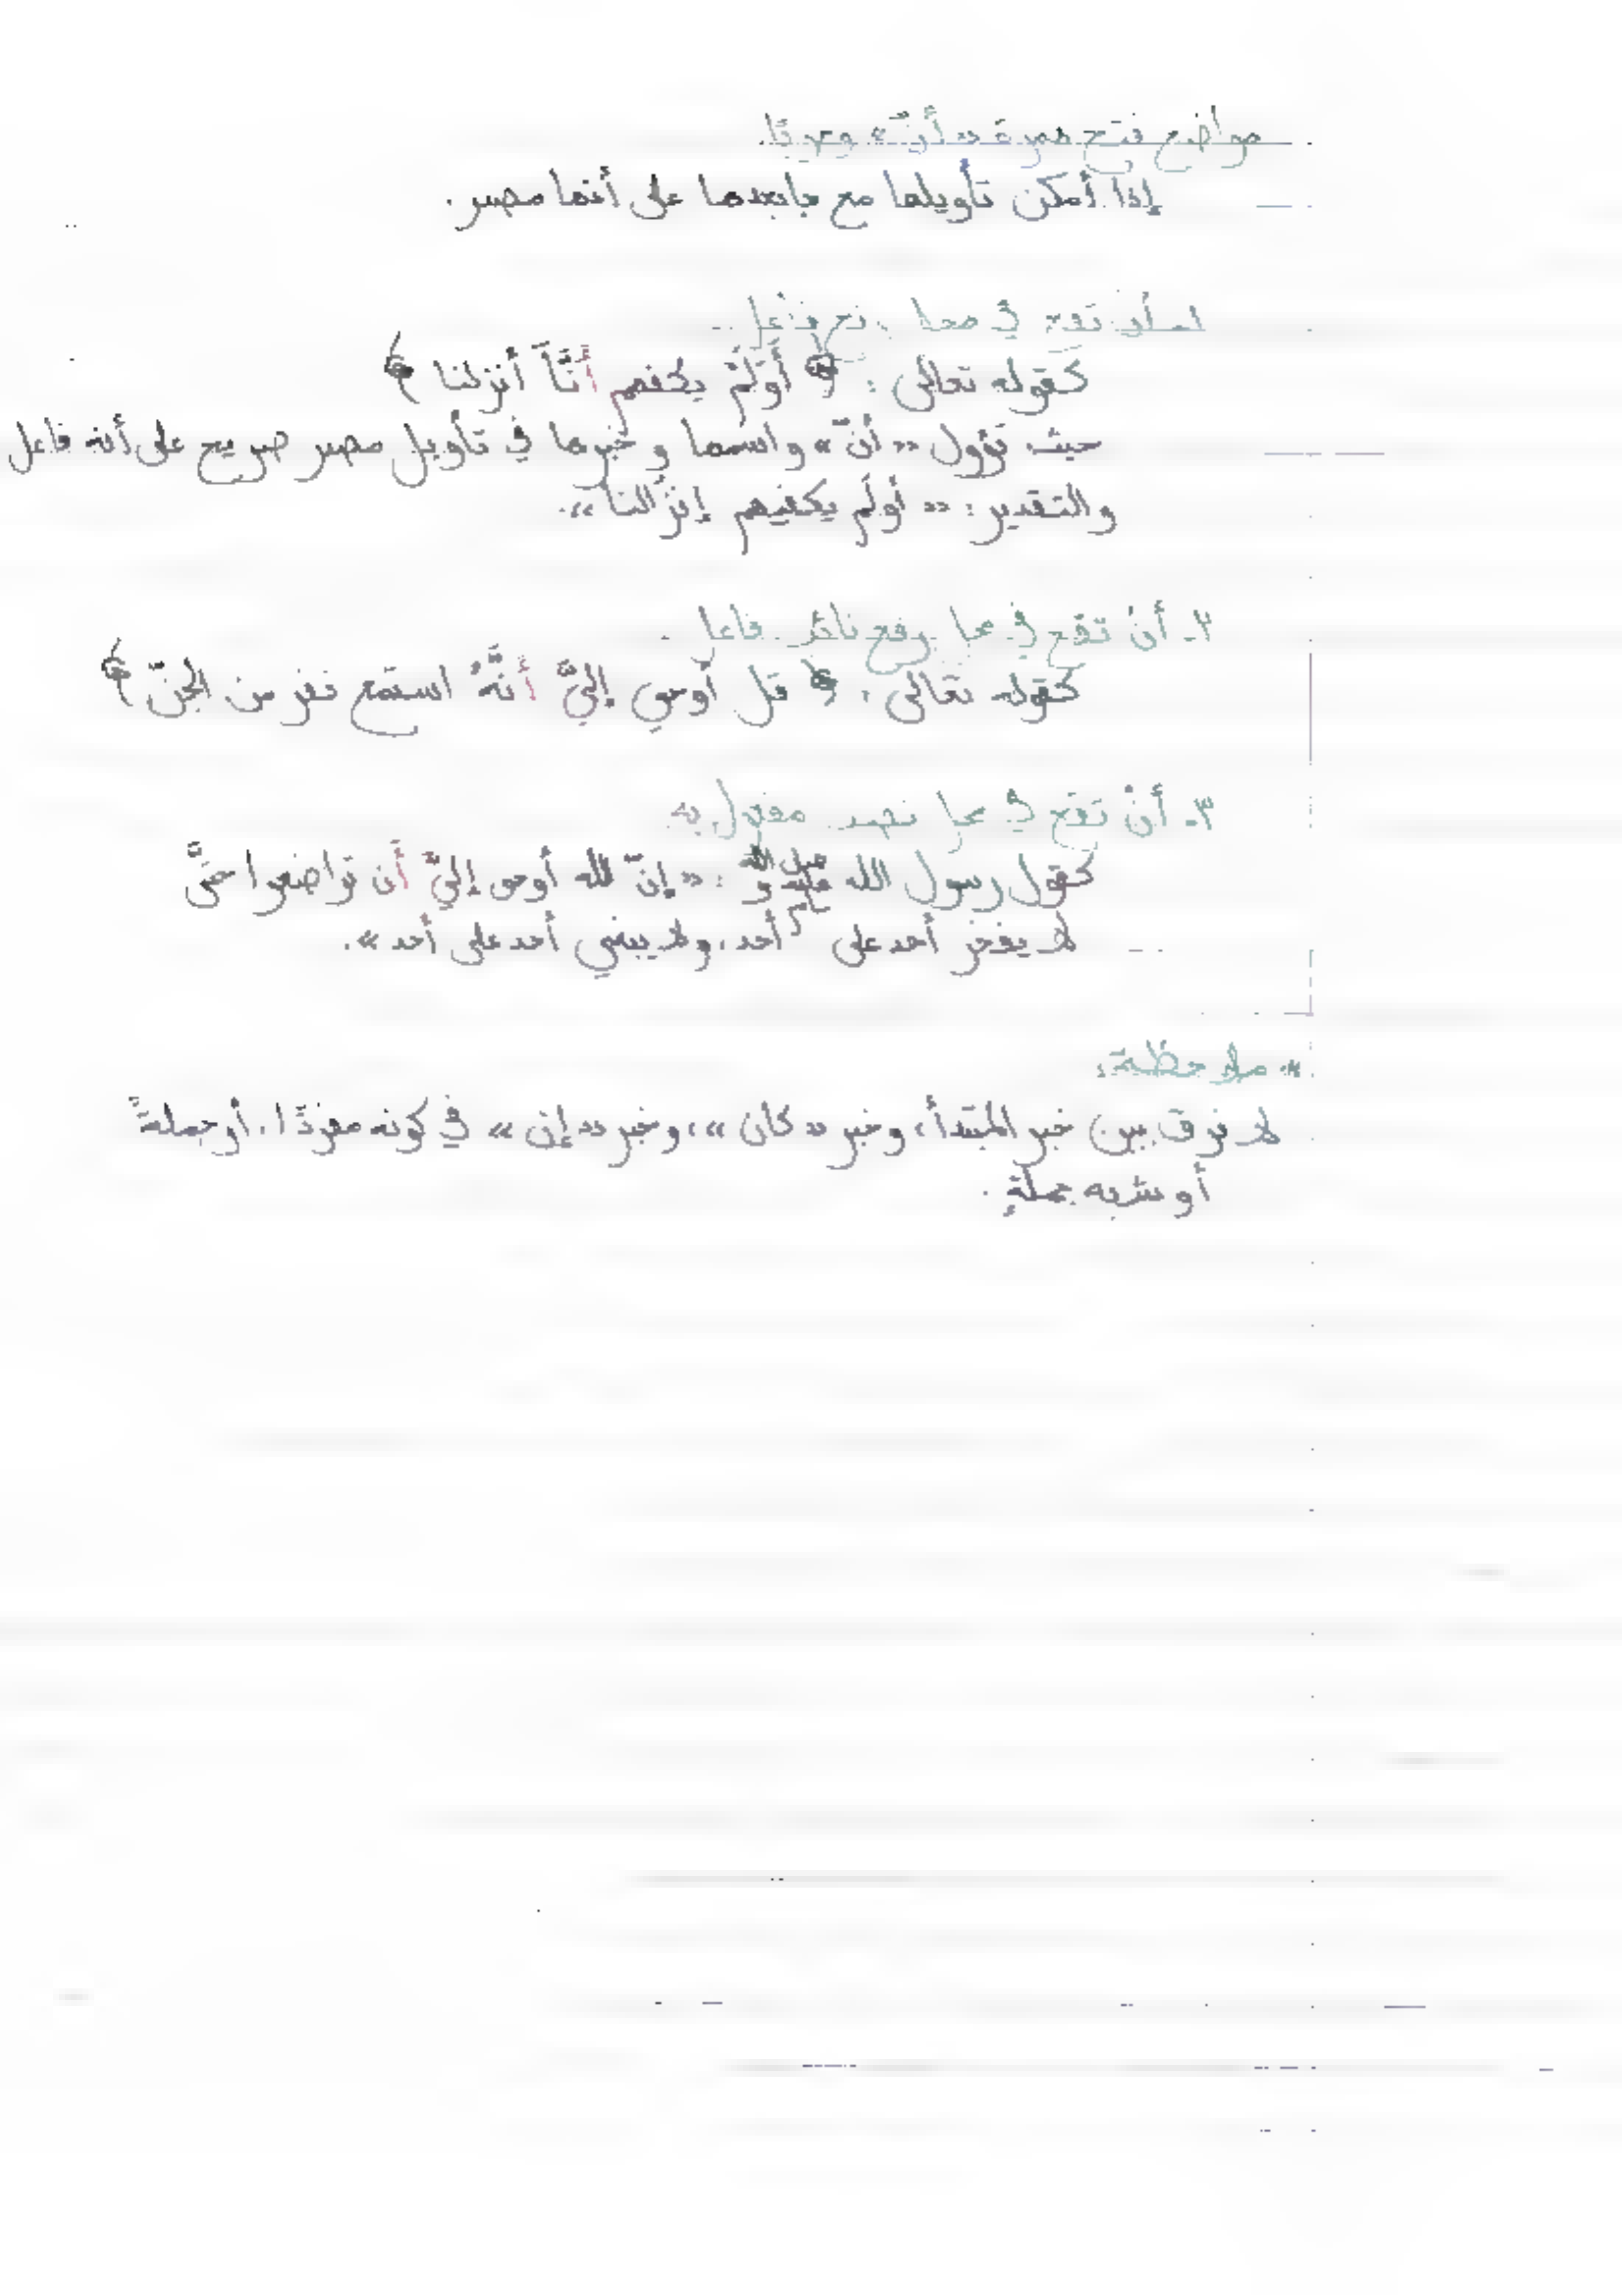 مواضع فتح همزة «أنّ» وجوبًا.
إذا أمكن تأويلها مع مابعدها على أنها مصدر.
أن تقع في محل رفع فاعل
كقوله تعالى : ﴿ أَوَلَمْ يكفهم أَنَّآ أنزلنا ﴾
حيث تؤول «أنّ» واسمها وخبرها في تأويل مصدر صريح على أنه فاعل
والتقدير: «أولَم يكفيهم إنزالنا».
٢ـ أنْ تقع في محل رفع نائب فاعل
كقوله تعالى : ﴿ قل أُوحي إليّ أنّهُ استمع نفر من الجنّ ﴾
٣ـ أنْ تقع في محل نصب مفعول به
كقول رسول الله صلى الله عليه وسلم : «إنّ الله أوحى إليّ أن تواضعوا حتَّى
لا يفخر أحد على أحد، ولا يبغي أحد على أحد».
* ملاحظة:
لا فرق بين خبر المبتدأ، وخبر «كان»، وخبر «إن» في كونه مفردًا، أو جملةً
أو شبه جملةٍ.